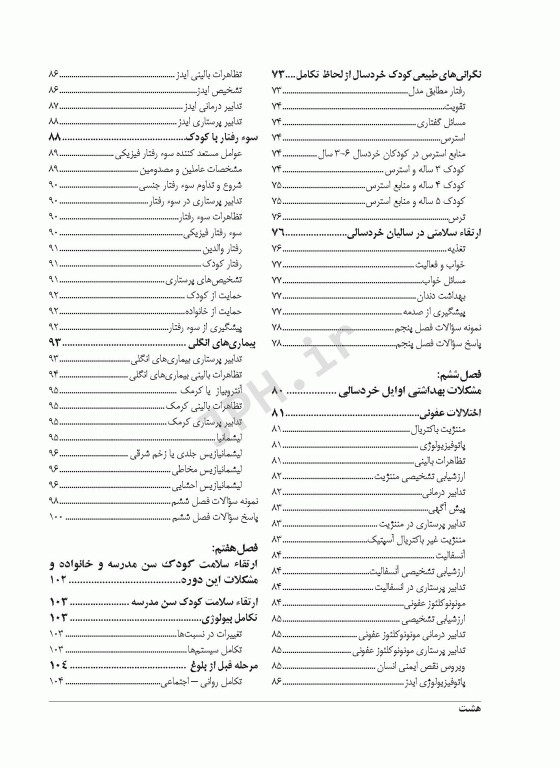 نگرانی‌های طبیعی کودک خردسال از لحاظ تکامل....۷۳
رفتار مطابق مدل....۷۳
تقویت....۷۴
مسائل گفتاری....۷۴
استرس....۷۴
منابع استرس در کودکان خردسال ۶-۳ سال....۷۴
کودک ۳ ساله و استرس....۷۴
کودک ۴ ساله و منابع استرس....۷۵
کودک ۵ ساله و منابع استرس....۷۵
ترس....۷۶
ارتقاء سلامتی در سالیان خردسالی....۷۶
تغذیه....۷۶
خواب و فعالیت....۷۷
مسائل خواب....۷۷
بهداشت دندان....۷۷
پیشگیری از صدمه....۷۷
نمونه سؤالات فصل پنجم....۷۸
پاسخ سؤالات فصل پنجم....۷۸
فصل ششم:
مشکلات بهداشتی اوایل خردسالی....۸۰
اختلالات عفونی....۸۱
مننژیت باکتریال....۸۱
پاتوفیزیولوژی....۸۱
تظاهرات بالینی....۸۱
ارزشیابی تشخیصی مننژیت....۸۲
تدابیر درمانی....۸۲
پیش آگهی....۸۳
تدابیر پرستاری در مننژیت....۸۳
مننژیت غیر باکتریال آسپتیک....۸۳
آنسفالیت....۸۴
ارزشیابی تشخیصی آنسفالیت....۸۴
تدابیر پرستاری در انسفالیت....۸۴
مونونوکلئوز عفونی....۸۴
ارزشیابی تشخیصی....۸۵
تدابیر درمانی مونونوکلئوز عفونی....۸۵
تدابیر پرستاری مونونوکلئوز عفونی....۸۵
ویروس نقص ایمنی انسان....۸۵
پاتوفیزیولوژی ایدز....۸۶
تظاهرات بالینی ایدز....۸۶
تشخیص ایدز....۸۶
تدابیر درمانی ایدز....۸۷
تدابیر پرستاری ایدز....۸۸
سوء رفتار با کودک....۸۸
عوامل مستعد کننده سوء رفتار فیزیکی....۸۹
مشخصات عاملین و مصدومین....۸۹
شروع و تداوم سوء رفتار جنسی....۹۰
تدابیر پرستاری در سوء رفتار....۹۰
تظاهرات سوء رفتار....۹۰
سوء رفتار فیزیکی....۹۰
رفتار والدین....۹۱
رفتار کودک....۹۱
تشخیص‌های پرستاری....۹۱
حمایت از کودک....۹۲
حمایت از خانواده....۹۲
پیشگیری از سوء رفتار....۹۲
بیماری‌های انگلی....۹۳
تدابیر پرستاری بیماری‌های انگلی....۹۳
تظاهرات بالینی بیماری‌های انگلی....۹۴
آنتروبیاز یا کرمک....۹۵
تظاهرات بالینی کرمک....۹۵
تدابیر پرستاری کرمک....۹۵
لیشمانیا....۹۵
لیشمانیازیس جلدی یا زخم شرقی....۹۶
لیشمانیازیس مخاطی....۹۶
لیشمانیازیس احشایی....۹۶
نمونه سؤالات فصل ششم....۹۸
پاسخ سؤالات فصل ششم....۱۰۰
فصل هفتم:
ارتقاء سلامت کودک سن مدرسه و خانواده و
مشکلات این دوره....۱۰۲
ارتقاء سلامت کودک سن مدرسه....۱۰۳
تکامل بیولوژی....۱۰۳
تغییرات در نسبت‌ها....۱۰۳
تکامل سیستم‌ها....۱۰۳
مرحله قبل از بلوغ....۱۰۴
تکامل روانی – اجتماعی....۱۰۴
هشت